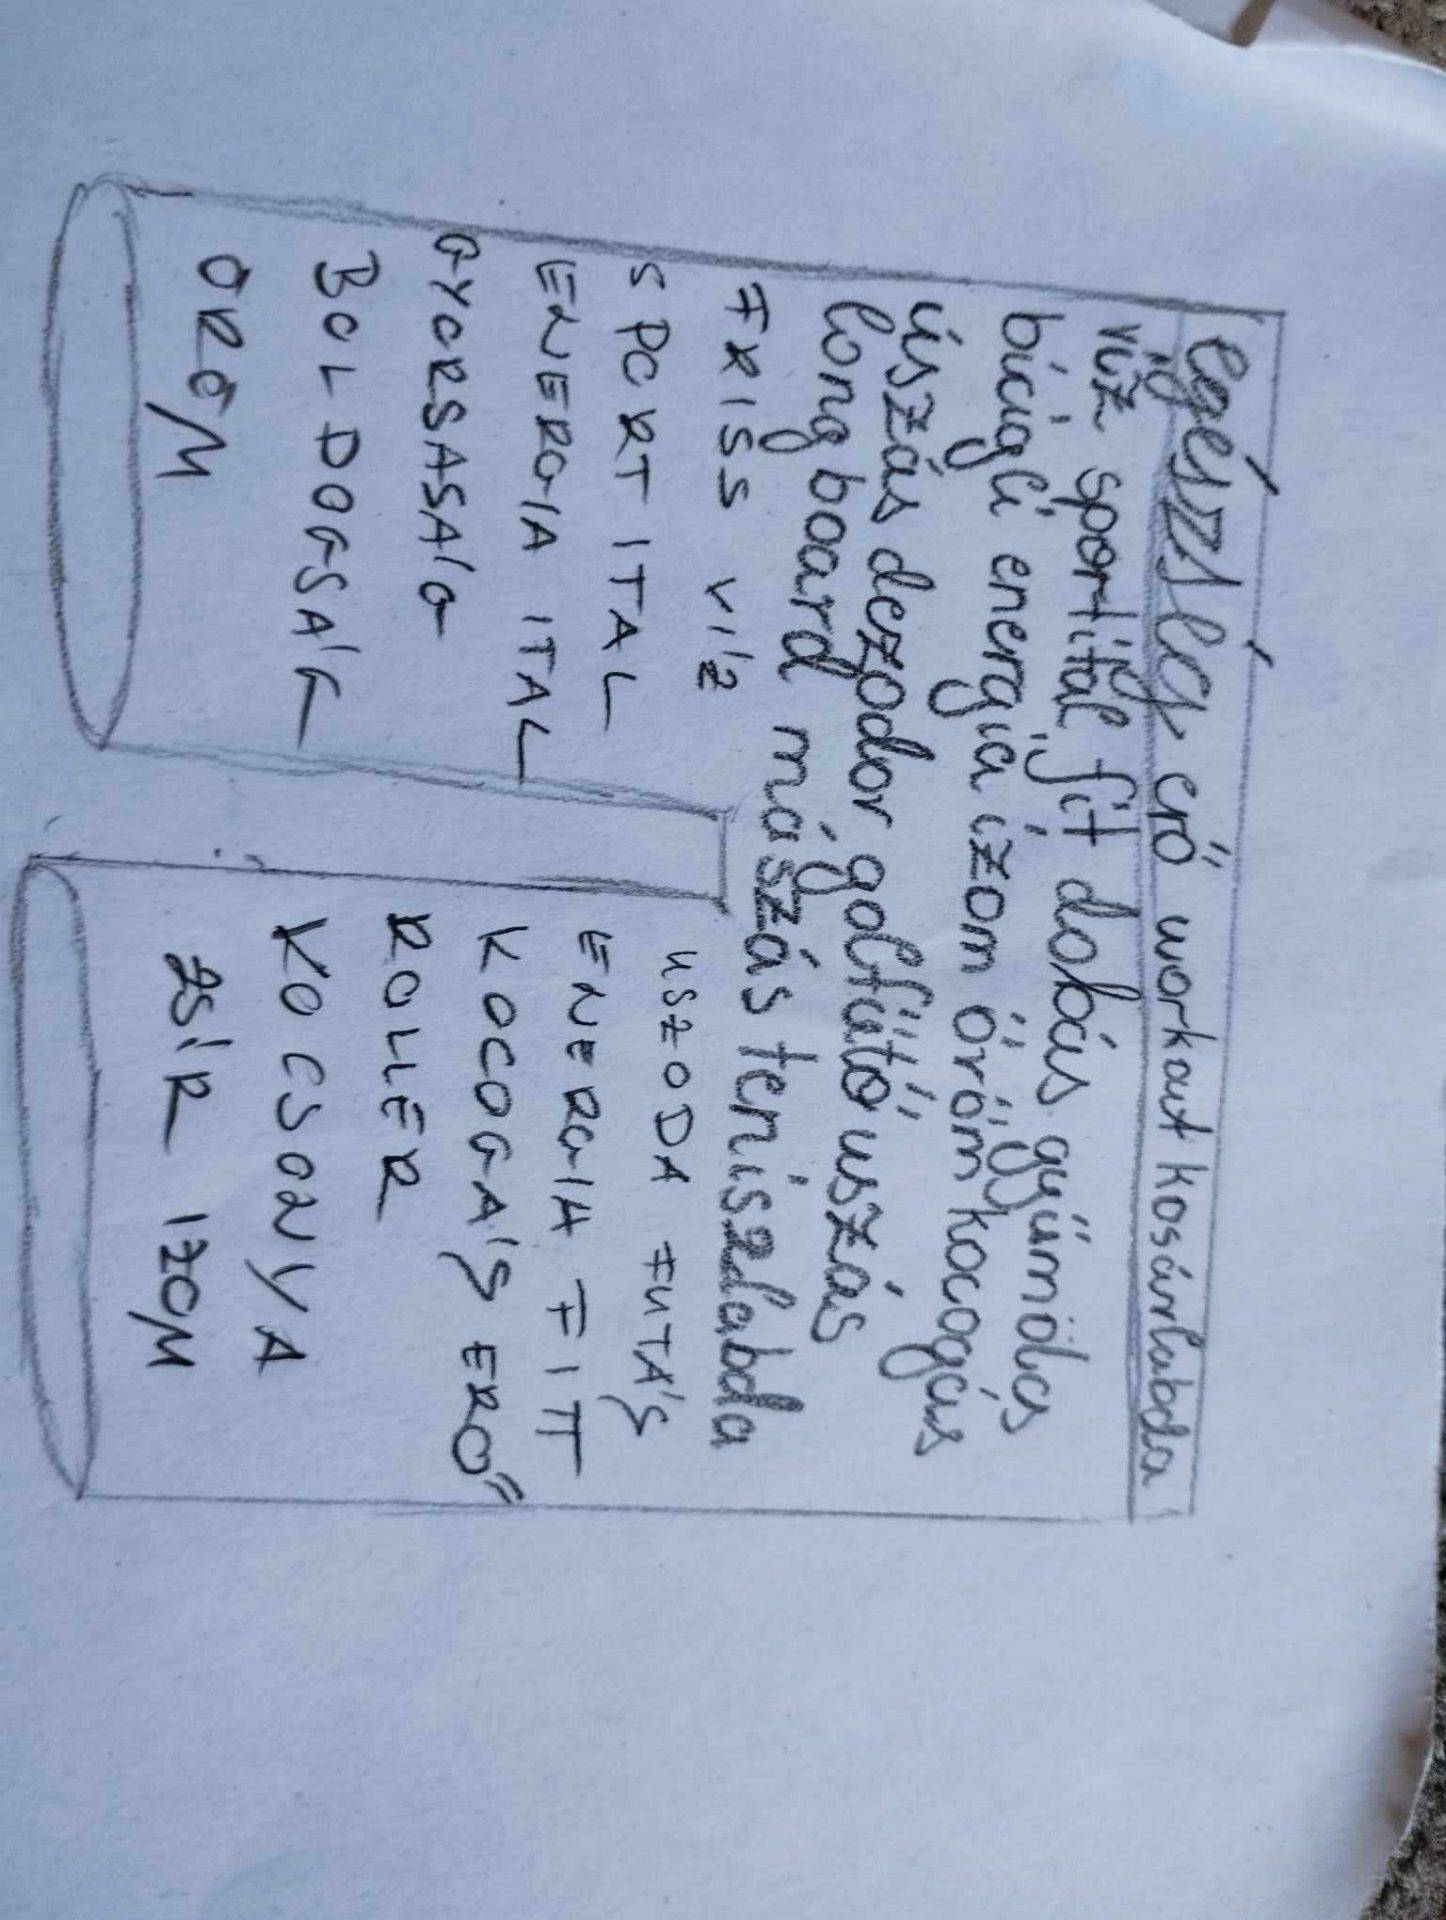 egészség erő workout kosárlabda
víz sportital fit dobás gyümölcs
bicigli energia izom öröm kocogás
úszás dezodor golfütő uszás
longboard mászás teniszlabda
FRISS VÍZ
SPORT ITAL
ENERGIA ITAL
GYORSASÁG
BOLDOGSÁG
ÖRÖM
USZODA FUTÁS
ENERGIA FITT
KOCOGÁS ERŐ
ROLLER
KOCSONYA
ZSÍR IZOM